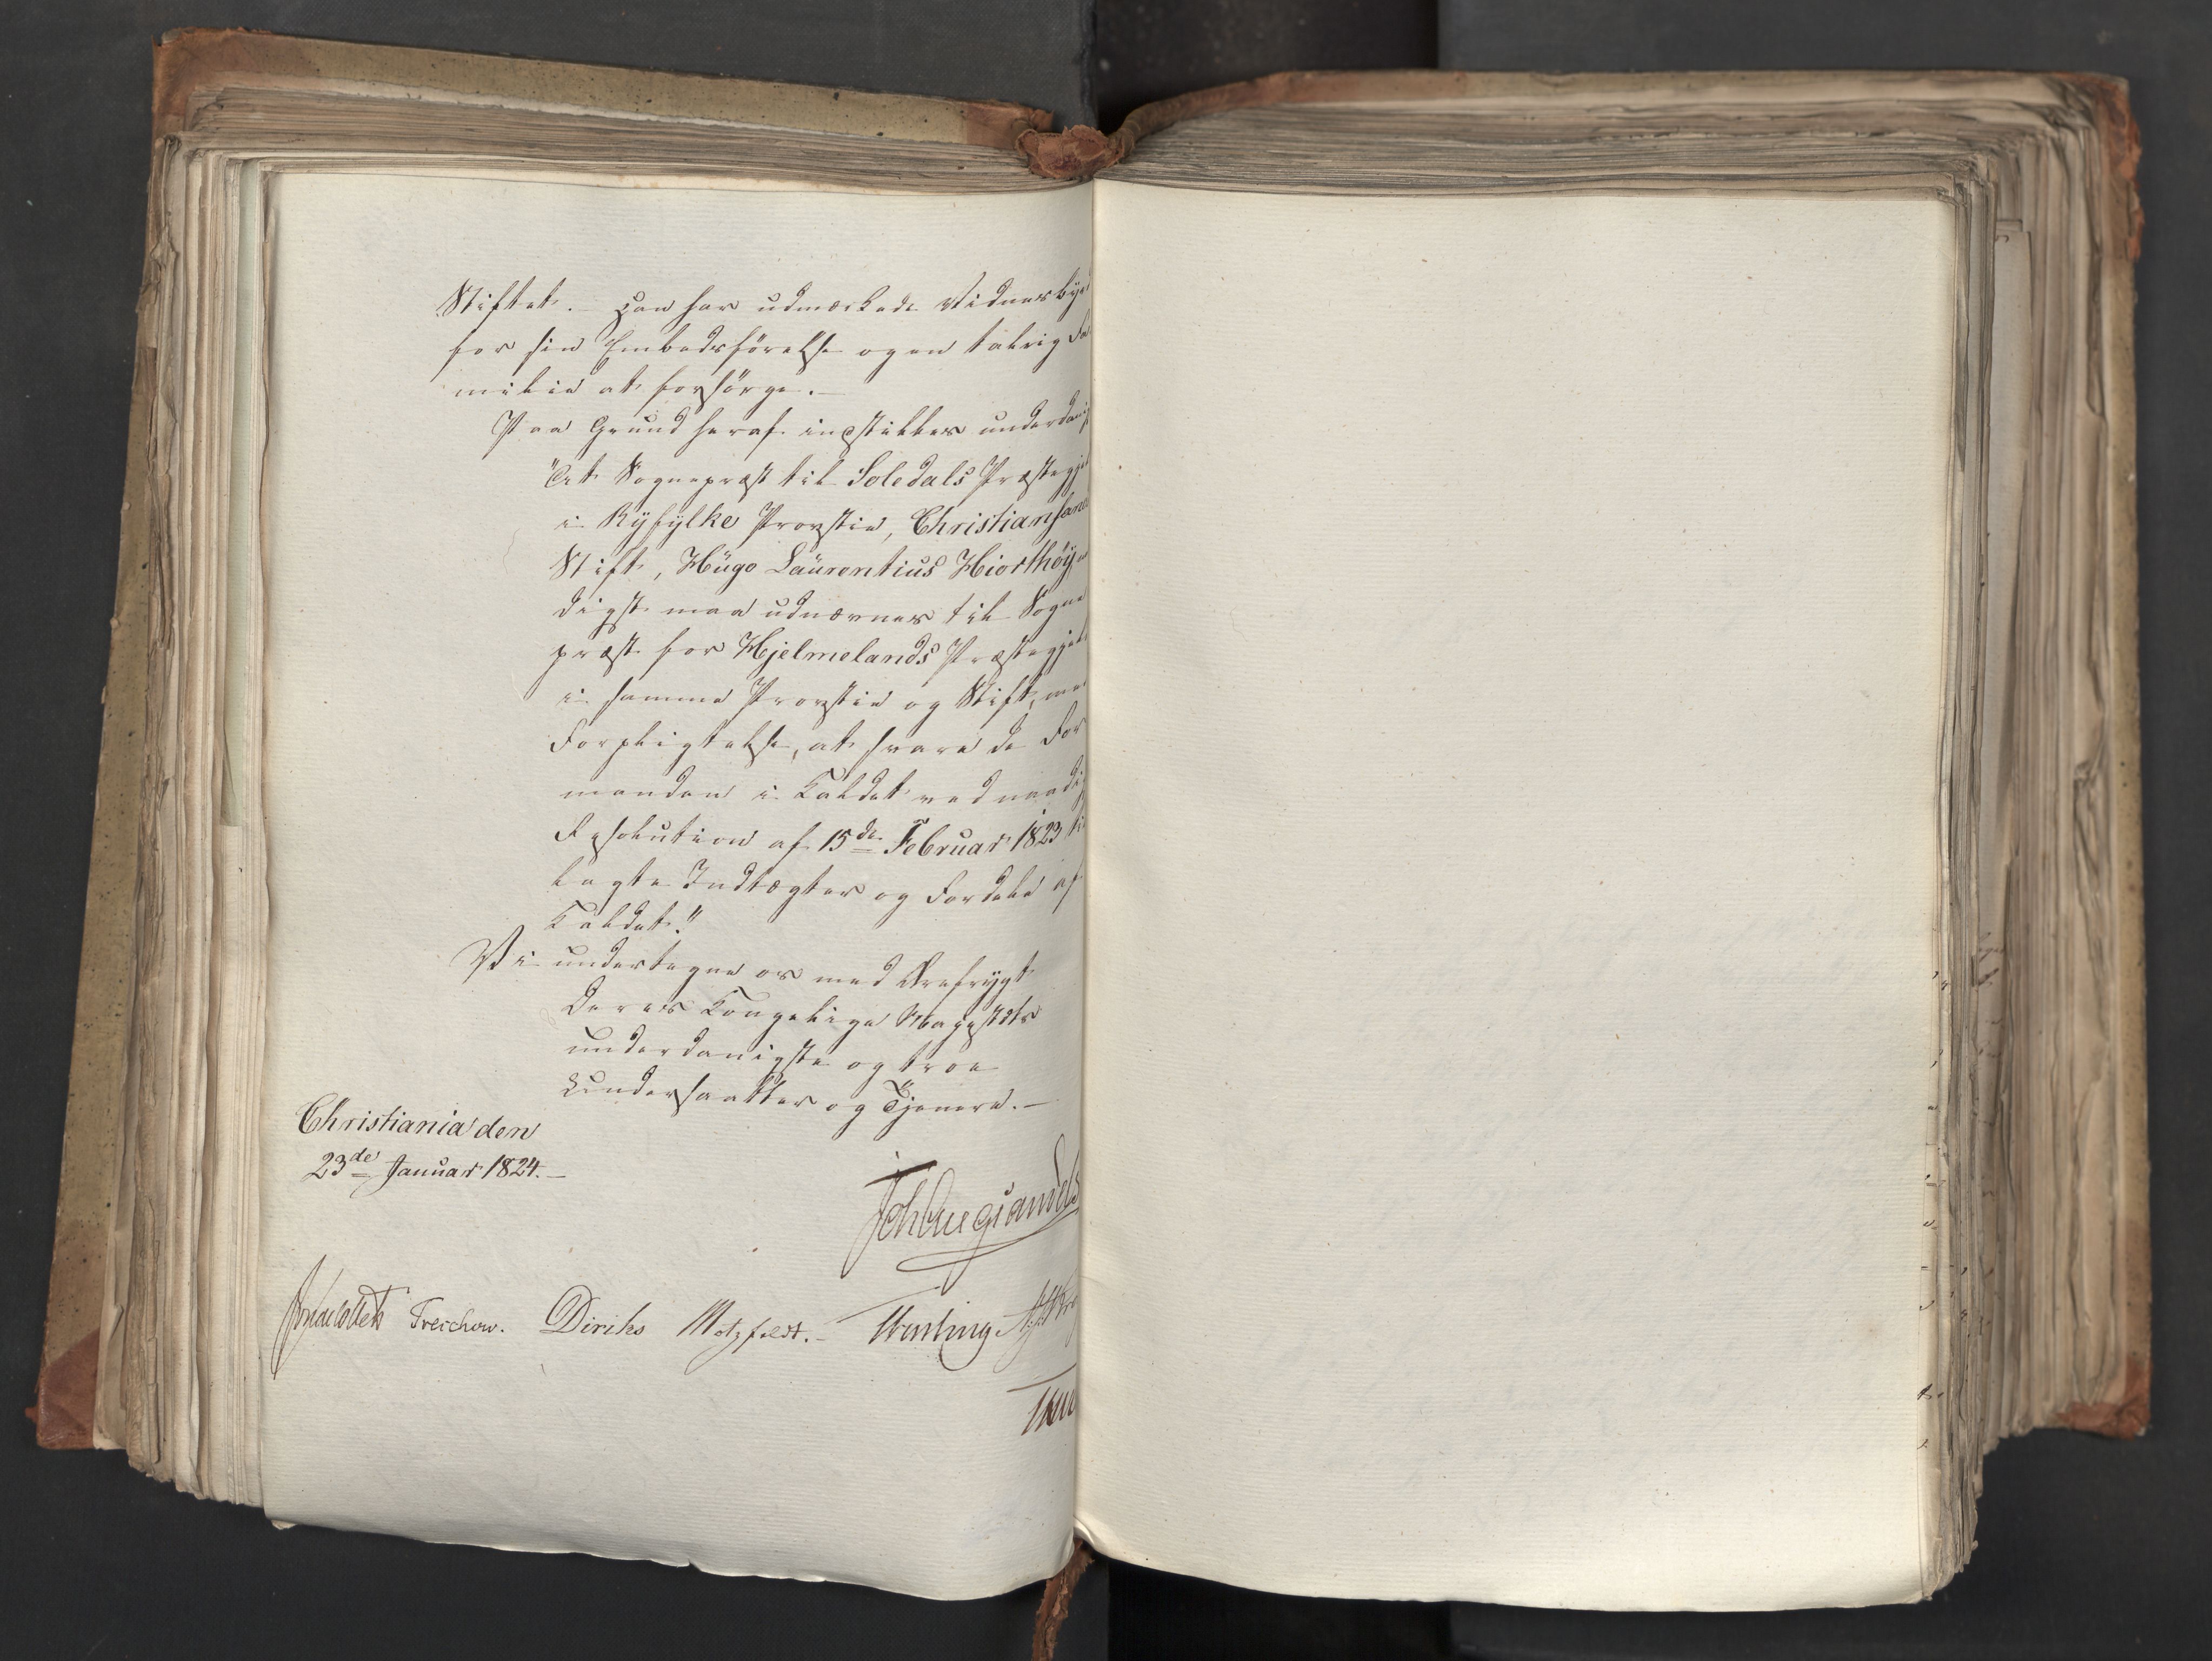 Stiftet. — Han har udmærkede Vidnesbyrd
for sin Embedsførelse og en talrig Fa
milie at forsørge. —
Paa Grund heraf indstilles underdanigst
"At Sognepræst til Soledals Præstegjeld
i Ryfylke Provstie, Christiansands
Stift, Hugo Laurentius Hiorthöy
digst maa udnævnes til Sogne
præst for Hjelmelands Præstegjeld
i samme Provstie og Stift, med
Forpligtelse, at svare de For
manden i Kaldet ved naadigst
Resolution af 15de Februar 1823 til
lagte Indtægter og Fordele af
Kaldet."
Vi undertegne os med Ærefrygt
Deres Kongelige Majestæts
underdanigste og troe
Undersaatter og Tjenere. —
Christiania den
23de Januar 1824. —
Joh Caspar Sandels
Jonas Collett Treschow. Diriks Motzfeldt. —